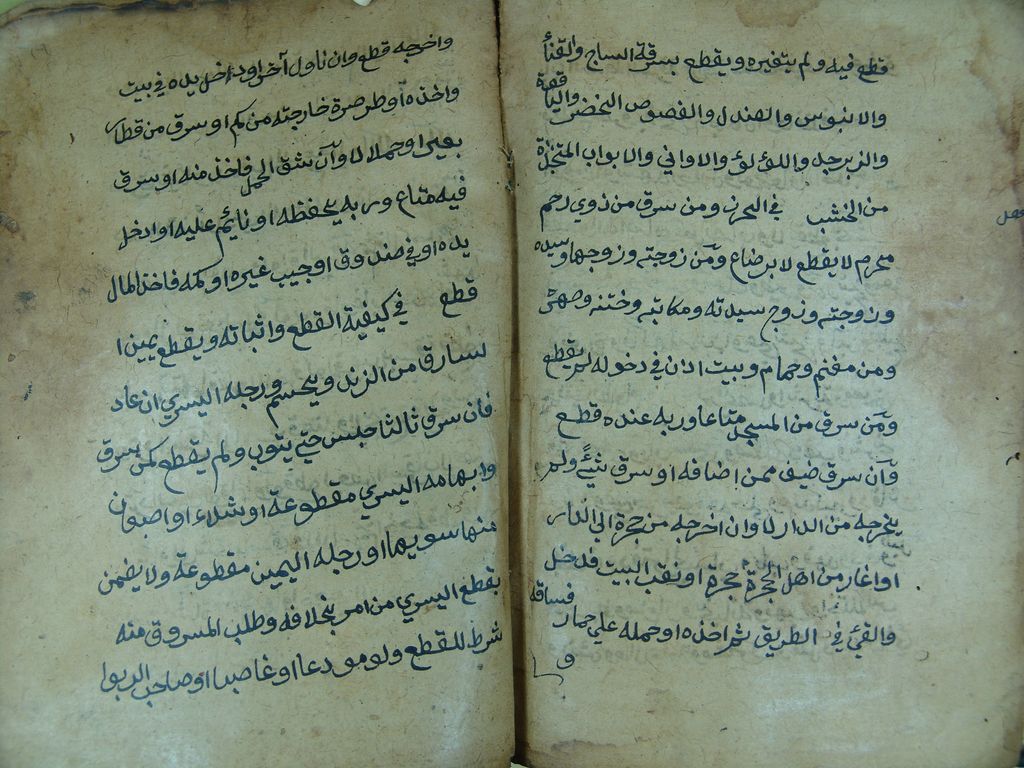 قطع فيه ولم يتغيره ويقطع بسرقة الساج والقنأ
والابنوس والصندل والفصوص الخضر والياقوة
والزبرجد واللؤلؤ والاواني والابواب المتخذة
من الخشب في الحرز ومن سرق من ذوي رحم
محرم لا يقطع لا برضاع ومن زوجته وزوجها وسيده
وزوجته وزوج سيدته ومكاتبه وختنه وصهره
ومن مغنم وحمام وبيت اذن في دخوله لم يقطع
ومن سرق من المسجد متاعا وربه عنده قطع
وان سرق ضيف ممن اضافه او سرق شيئ ولم
يخرجه من الدار لا وان اخرجه من حجرة الي الدار
او اغار من اهل الحجرة حجرة او نقب البيت فدخل
والقي في الطريق ثم اخذه او حمله علي حمار فساقه
وا
واخرجه قطع وان ناول آخر او ادخل يده في بيت
واخذه او طر صرة خارجته من كم او سرق من قطار
بعيرا او حملا لا وان شق الحمل فاخذ منه او سرق
فيه متاع وربه يحفظه او نائم عليه او ادخل
يده او في صندوق او جيب غيره او كمه فاخذ المال
قطع في كيفية القطع واثباته ويقطع يمين ا
لسارق من الزند ويحسم ورجله اليسري ان عاد
فان سرق ثالثا حبس حتي يتوب ولم يقطع كمن سرق
وابهامه اليسري مقطوعة او شلاء او اصبعان
منها سويها او رجله اليمين مقطوعة ولا يضمن
بقطع اليسري من امر بخلافه وطلب المسروق منه
شرط للقطع ولو مودعا او غاصبا او صاحب الربوا